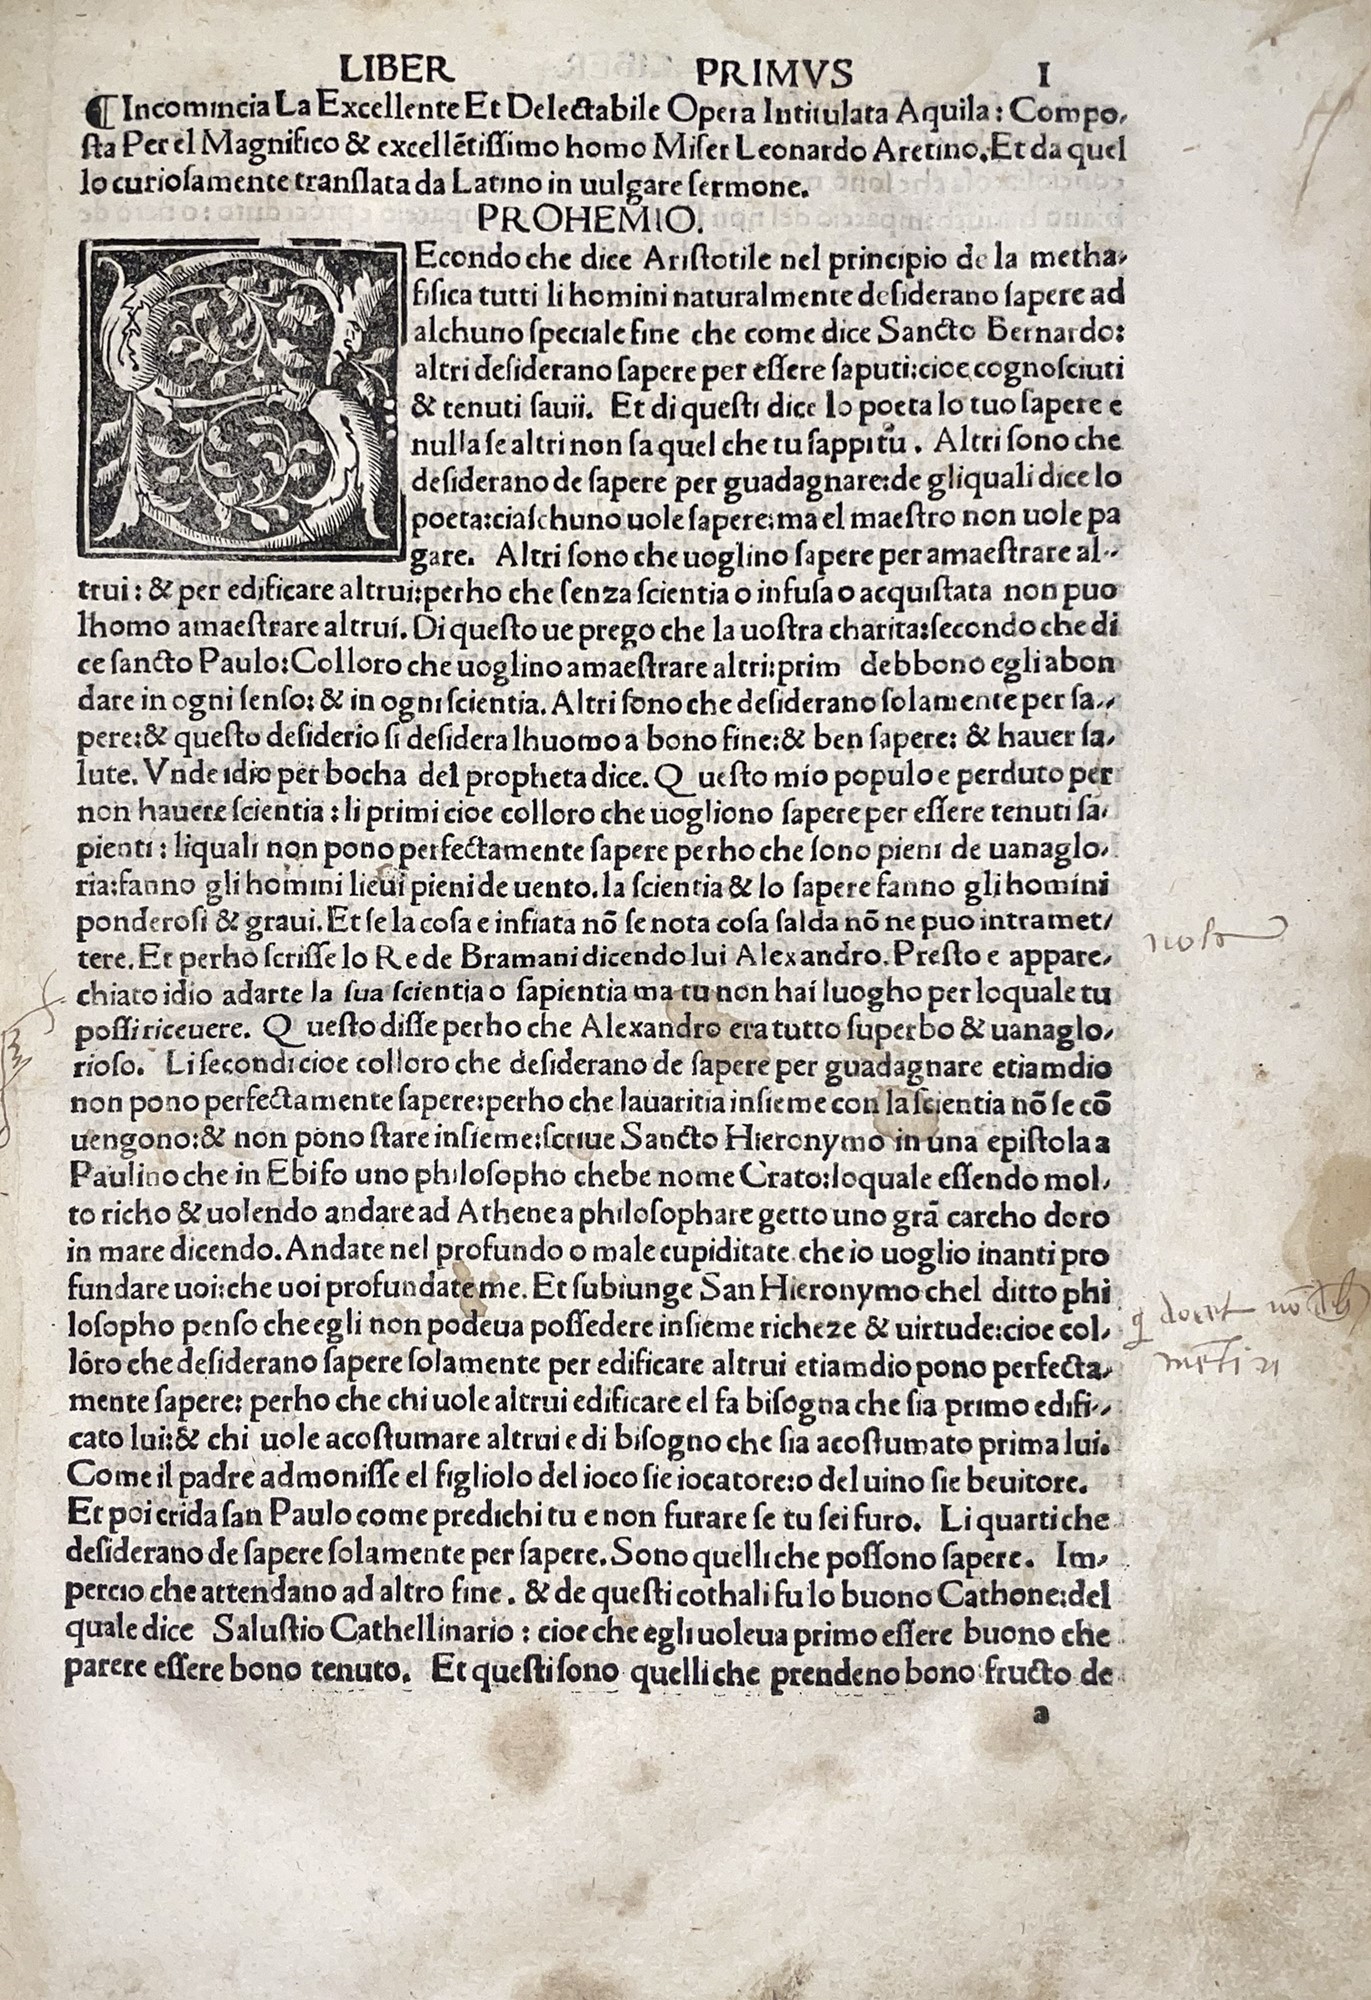 LIBER PRIMVS I
¶ Incomincia La Excellente Et Delectabile Opera Intitulata Aquila: Compo,
ſta Per el Magnifico & excellētiſſimo homo Miſer Leonardo Aretino. Et da quel
lo curioſamente tranſlata da Latino in uulgare ſermone.
PROHEMIO.
SEcondo che dice Ariſtotile nel principio de la metha,
fiſica tutti li homini naturalmente deſiderano ſapere ad
alchuno ſpeciale fine che come dice Sancto Bernardo:
altri deſiderano ſapere per eſſere ſaputi:cioe cognoſciuti
& tenuti ſauii. Et di queſti dice lo poeta lo tuo ſapere e
nulla ſe altri non ſa quel che tu ſappi tu. Altri ſono che
deſiderano de ſapere per guadagnare:de gli quali dice lo
poeta:ciaſchuno uole ſapere:ma el maeſtro non uole pa
gare. Altri ſono che uoglino ſapere per amaeſtrare al,,
trui: & per edificare altrui:perho che ſenza ſcientia o infuſa o acquiſtata non puo
lhomo amaeſtrare altrui. Di queſto ue prego che la uoſtra charita:ſecondo che di
ce ſancto Paulo:Colloro che uoglino amaeſtrare altri:prim debbono egli abon
dare in ogni ſenſo: & in ogni ſcientia. Altri ſono che deſiderano ſolamente per ſa,,
pere:& queſto deſiderio ſi deſidera lhuomo a bono fine:& ben ſapere: & hauer ſa,
lute. Vnde idio per bocha del propheta dice. Queſto mio populo e perduto per
non hauere ſcientia: li primi cioe colloro che uogliono ſapere per eſſere tenuti ſa,
pienti: liquali non pono perfectamente ſapere perho che ſono pieni de uanaglo,
ria:fanno gli homini lieui pieni de uento. la ſcientia & lo ſapere fanno gli homini
ponderoſi & graui. Et ſe la coſa e infiata nō ſe nota coſa ſalda nō ne puo intramet,
tere. Et perho ſcriſſe lo Re de Bramani dicendo lui Alexandro. Preſto e appare,
chiato idio adarte la ſua ſcientia o ſapientia ma tu non hai luogho per loquale tu
poſſi riceuere. Queſto diſſe perho che Alexandro era tutto ſuperbo & uanaglo,
rioſo. Li ſecondi cioe colloro che deſiderano de ſapere per guadagnare etiamdio
non pono perfectamente ſapere:perho che lauaritia inſieme con la ſcientia nō ſe cō
uengono:& non pono ſtare inſieme:ſcriue Sancto Hieronymo in una epiſtola a
Paulino che in Ebifo uno philoſopho chebe nome Crato:loquale eſſendo mol,
to richo & uolendo andare ad Athene a philoſophare getto uno grā carcho doro
in mare dicendo. Andate nel profundo o male cupiditate che io uoglio inanti pro
fundare uoi:che uoi profundate me. Et ſubiunge San Hieronymo chel ditto phi
loſopho penſo che egli non podeua poſſedere inſieme richeze & uirtude:cioe col,
loro che deſiderano ſapere ſolamente per edificare altrui etiamdio pono perfecta,
mente ſapere: perho che chi uole altrui edificare el fa biſogna che ſia primo edifi,,
cato lui:& chi uole acoſtumare altrui e di biſogno che ſia acoſtumato prima lui.
Come il padre admoniſſe el figliolo del ioco ſie iocatore:o del uino ſie beuitore.
Et poi crida ſan Paulo come predichi tu e non furare ſe tu ſei furo. Li quarti che
deſiderano de ſapere ſolamente per ſapere. Sono quelli che poſſono ſapere. Im,
percio che attendano ad altro fine. & de queſti cothali fu lo buono Cathone:del
quale dice Saluſtio Cathellinario: cioe che egli uoleua primo eſſere buono che
parere eſſere bono tenuto. Et queſti ſono quelli che prendeno bono fructo de
a